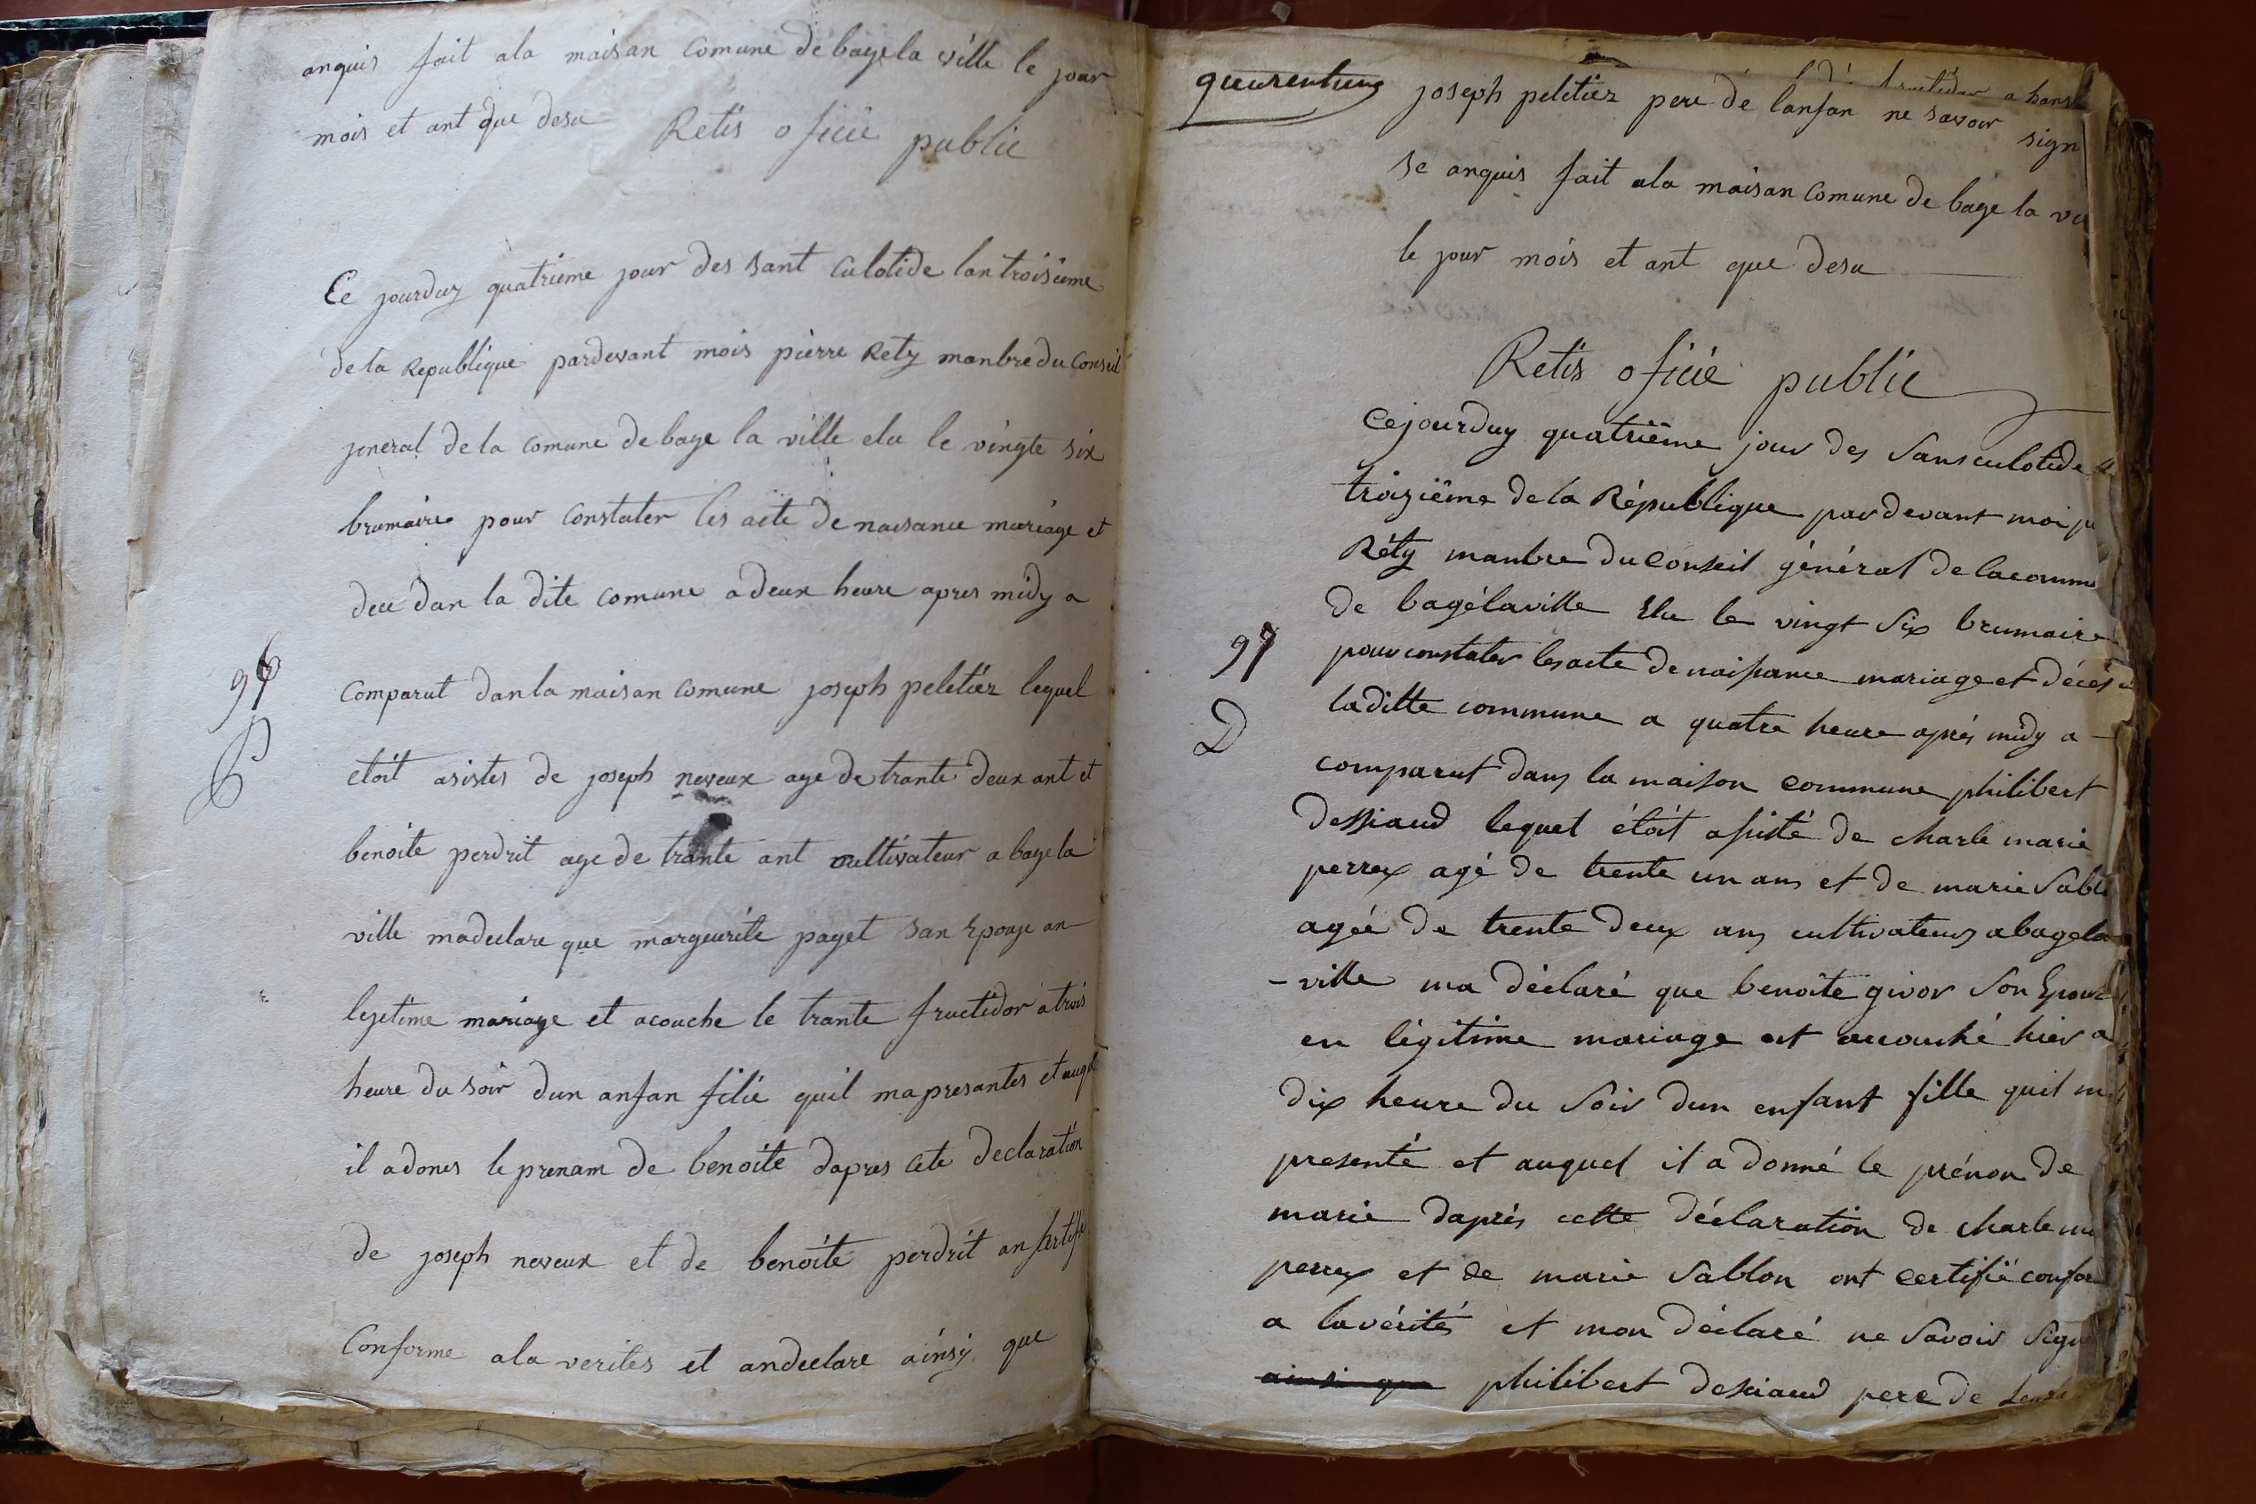 anquis fait ala maisan comune de bagela ville le jour
mois et ant que desu Retis oficié public
Ce jourduy quatrieme jour des sant culotide lan troisieme
de la Republique pardevant mois pierre Rety manbre du Conseil
jeneral de la comune de bage la ville elu le vingte six
brumaire pour constater les acte de naisance mariage et
dece dan la dite comune a deux heure apres midy a
96
comparut dan la maisan comune joseph peletiez lequel
etoit asistes de joseph neveux age de trante deux ant et
benoite perdrit age de trante ant cultivateur a bagela
ville madeclare que margeurite paget san Epouse an
legetime mariage et acouche le trante fructidor a trois
heure du soir dun anfan filie quil mapresantes et auqel
il adones le prenam de benoite dapres cete declaration
de joseph neveux et de benoite perdrit an sertifie
Conforme ala verites et andeclare ainsy que
queurentuns
joseph peletiez pere de lanfan ne savoir sign
se anquis fait ala maisan comune de bage la vil
le jour mois et ant que desu
Retis oficié public
Cejourduy quatriême jour des Sansculotide
troiziême de la République pardevant moi
Réty manbre du Conseil général de lacommu
de bagélaville Elu le vingt Six brumaire
97 pour constater les acte de naissance mariage et décés
D
laditte commune a quatre heure aprés midy a
comparut dans la maison commune philibert
dessiaud lequel étoit assisté de charle marie
perrex agé de trente un ans et de marie Sablo
agée de trente deux ans cultivateurs abagela
-ville ma déclaré que benoite givor Son Epouse
en légitime mariage est accouché hier a
dix heure du Soir dun enfant fille quil m
presenté et auquel il a donné le prénon de
marie daprés cette déclaration de charle ma
perrex et de marie Sablon ont certifié confor
a lavérités et mon déclaré ne Savoir Sign
ainsi que philibert dessiaud pere de